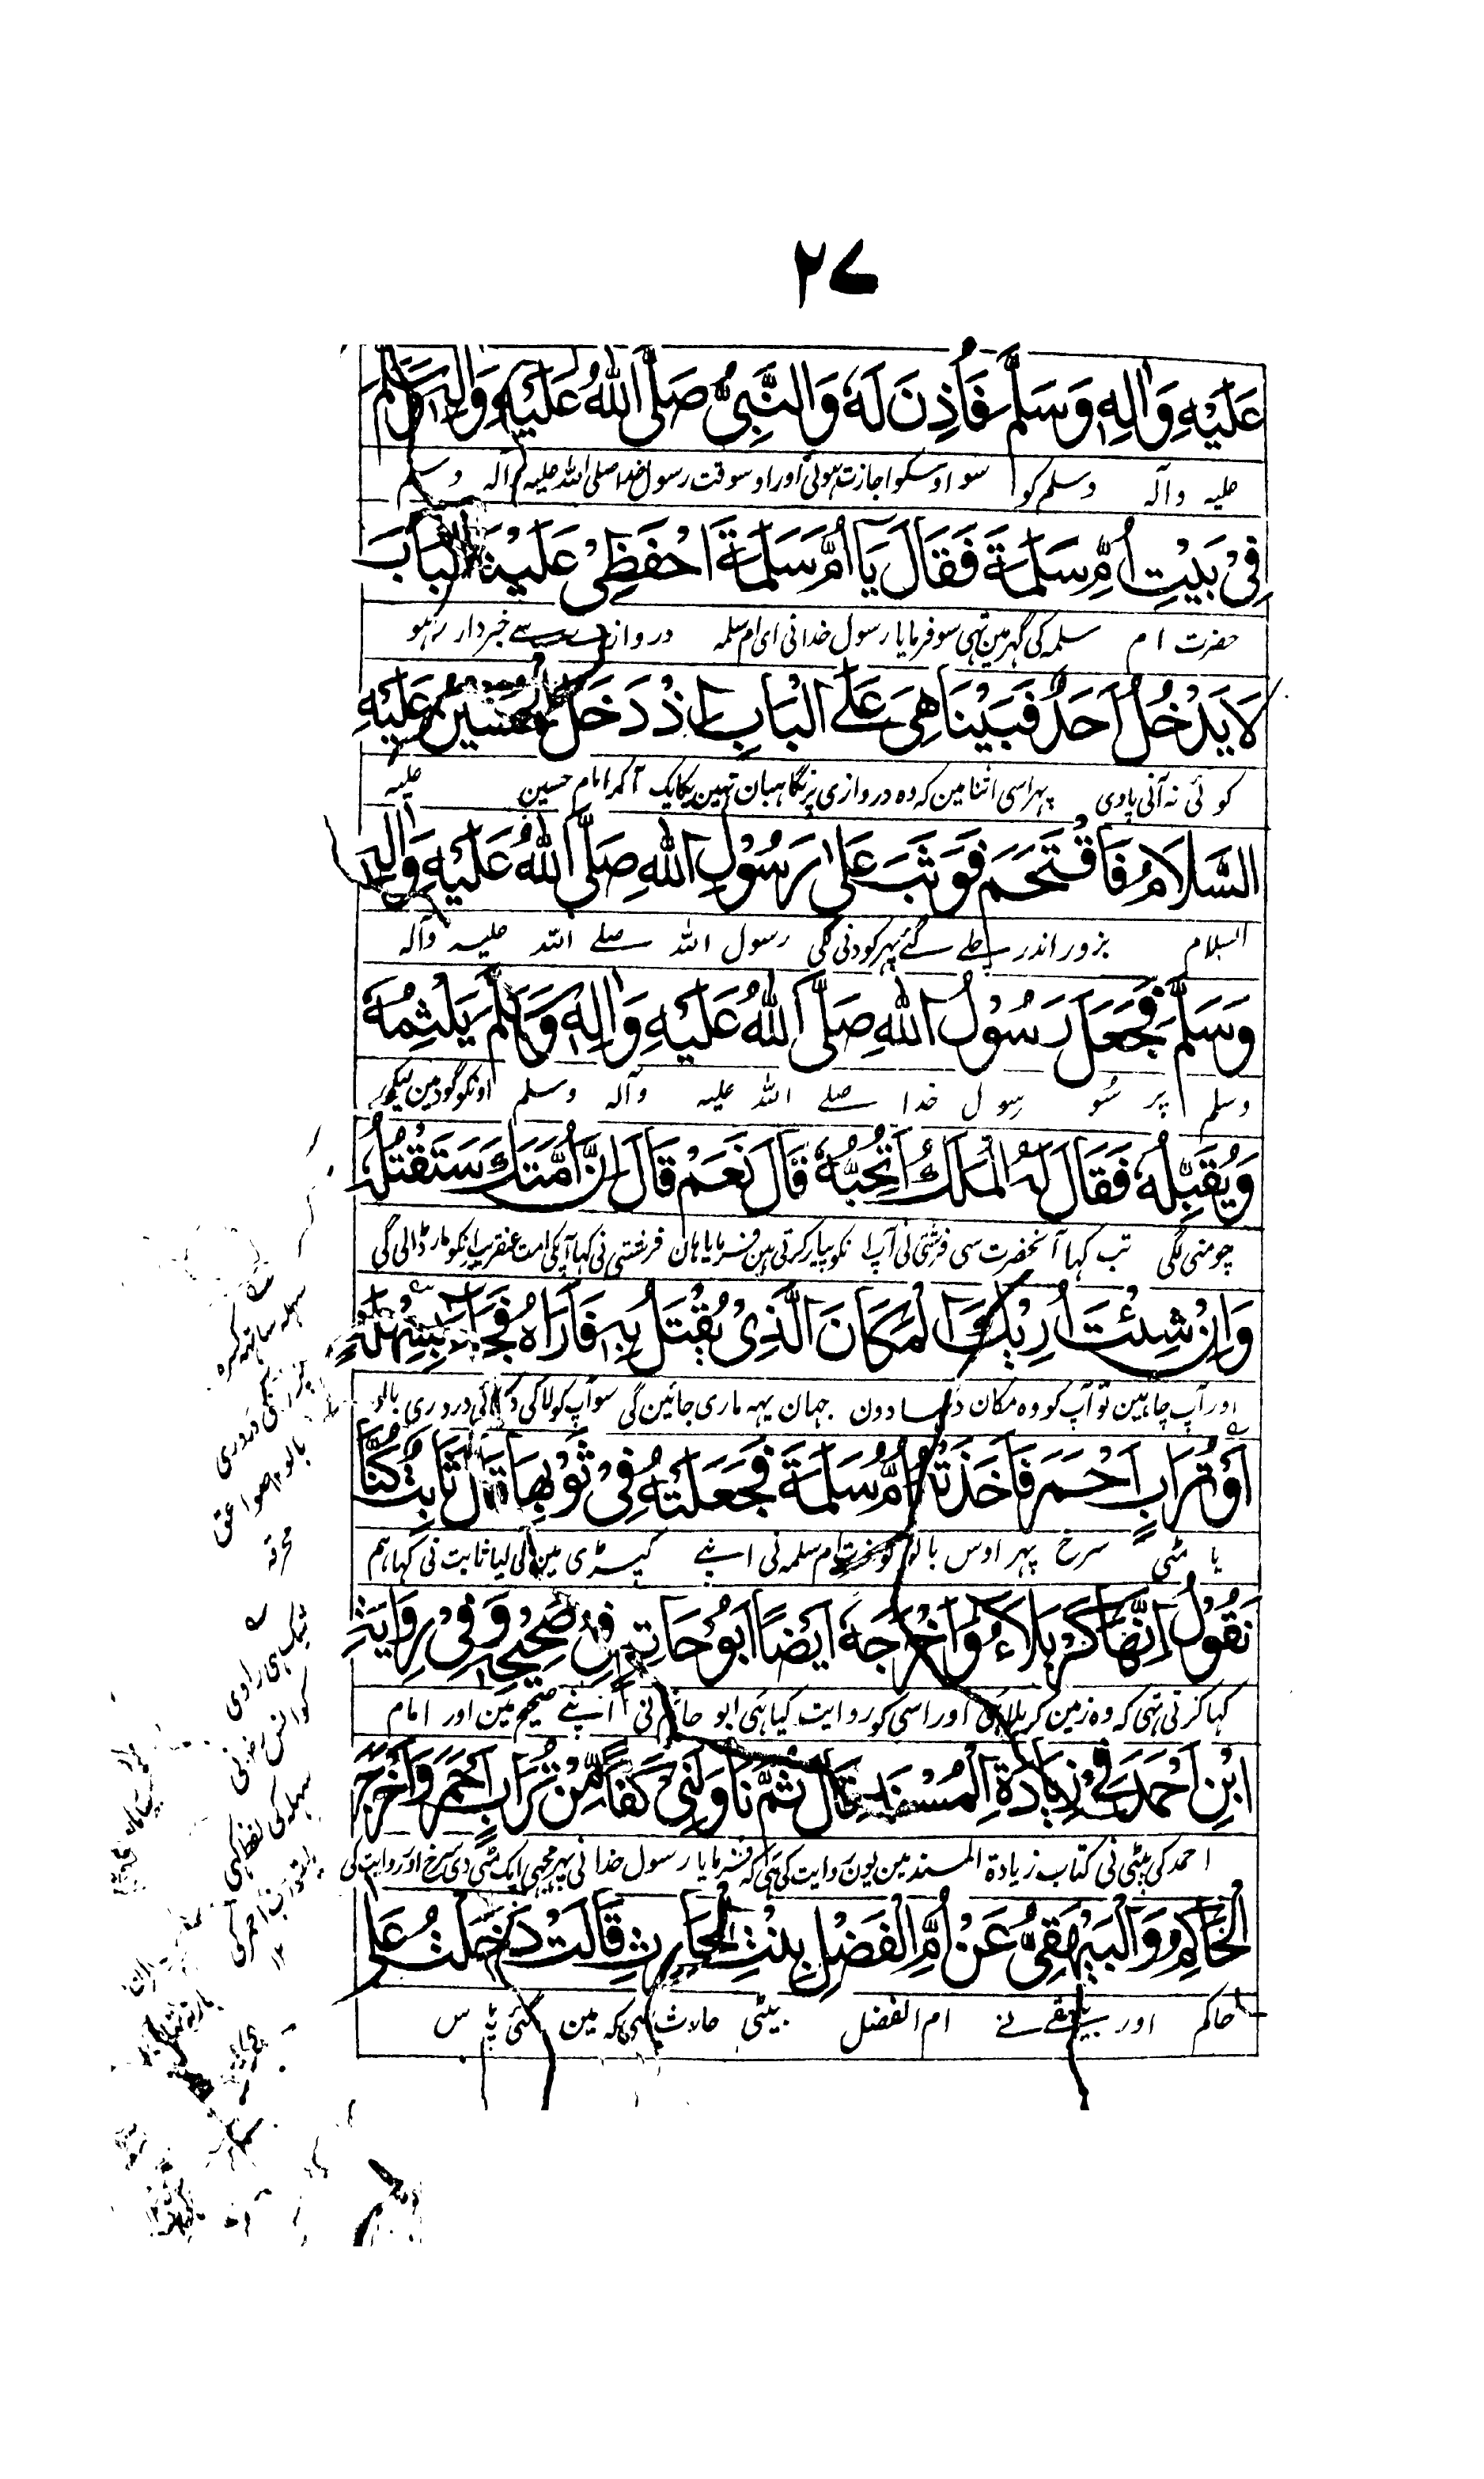 ٢٧
عَلَيْهِ وَاٰلِهٖ وَسَلَّمَ فَاُذِنَ لَهٗ وَالنَّبِىُّ صَلَّى اللّٰهُ عَلَيْهِ وَاٰلِهٖ وَسَلَّمَ
علیہ وآلہ وسلم کو سو اوسکو اجازت ہوئی اور اوسوقت رسول خدا صلی اللہ علیہ وآلہ وسلم
فِىْ بَيْتِ اُمِّ سَلَمَةَ فَقَالَ يَا اُمَّ سَلَمَةَ احْفَظِىْ عَلَيْنَا الْبَابَ
حضرت ام سلمہ کی گہر مین تہی سو فرمایا رسول خدا نی ای ام سلمہ دروازے سے خبردار رہو
لَا يَدْخُلُ اَحَدٌ فَبَيْنَا هِىَ عَلَى الْبَابِ اِذْ دَخَلَ الْحُسَيْنُ عَلَيْهِ
کوئی نہ آنی پاوی پہر اسی اثنا مین کہ وہ دروازی پر نگاہبان تہین یکایک آکر امام حسین علیہ
السَّلَامُ فَاقْتَحَمَ فَوَثَبَ عَلٰى رَسُوْلِ اللّٰهِ صَلَّى اللّٰهُ عَلَيْهِ وَاٰلِهٖ
السلام بزور اندر چلے گئے پہر کودنی لگی رسول اللہ صلے اللہ علیہ وآلہ
وَسَلَّمَ فَجَعَلَ رَسُوْلُ اللّٰهِ صَلَّى اللّٰهُ عَلَيْهِ وَاٰلِهٖ وَسَلَّمَ يَلْثِمُهٗ
وسلم پر سُو رسول خدا صلے اللہ علیہ وآلہ وسلم اونکو گود مین لیکر
وَيُقَبِّلُهٗ فَقَالَ لَهُ الْمَلَكُ اَتُحِبُّهٗ قَالَ نَعَمْ قَالَ اِنَّ اُمَّتَكَ سَتَقْتُلُهٗ
چومنی لگی تب کہا آنحضرت سی فرشتی نی آپ انکو پیار کرتی ہین فرمایا ہان فرشتی نی کہا آپکی امت عنقریب انکو مار ڈالی گی
وَاِنْ شِئْتَ اُرِيْكَ الْمَكَانَ الَّذِىْ يُقْتَلُ بِهٖ فَاَرَاهُ فَجَاءَ بِسِهْلَةٍ
اور آپ چاہین تو آپ کو وہ مکان دکہا دون جہان یہہ ماری جائین گی سو آپ کو لاکی دکہائی دردری بالو
اَوْ تُرَابٍ اَحْمَرَ فَاَخَذَتْهُ اُمُّ سَلَمَةَ فَجَعَلَتْهُ فِىْ ثَوْبِهَا قَالَ ثَابِتٌ كُنَّا
یا مٹی سرخ پہر اوس بالو کو حضرت ام سلمہ نی اپنے کپڑی مین لی لیا ثابت نی کہا ہم
نَقُوْلُ اِنَّهَا كَرْبَلَاءُ وَاَخْرَجَهٗ اَيْضًا اَبُوْ حَاتِمٍ فِىْ صَحِيْحِهٖ وَفِىْ رِوَايَةِ
کہا کرتی تہی کہ وہ زمین کربلا ہی اور اسی کو روایت کیا ہی ابو حاتم نی اپنے صحیح مین اور امام
ابْنِ اَحْمَدَ فِىْ زِيَادَةِ الْمُسْنَدِ قَالَ ثُمَّ نَاوَلَنِىْ كَفًّا مِّنْ تُرَابٍ اَحْمَرَ وَاَخْرَجَ
احمد کی بیٹی نی کتاب زیادۃ المسند مین یون روایت کی ہی کہ فرمایا رسول خدا نی پہر مجہی ایک مٹھی دی سرخ اور روایت کی
الْحَاكِمُ وَالْبَيْهَقِىُّ عَنْ اُمِّ الْفَضْلِ بِنْتِ الْحَارِثِ قَالَتْ دَخَلْتُ عَلٰى
حاکم اور بیہقے نے ام الفضل بیٹی حارث سی کہ مین گئی پاس
سہلہ ساتھ کسرہ
دردری
بالو صواعق
محرقہ
شک ہی راوی
کو انس نی
سہلہ کی لفظ کہی